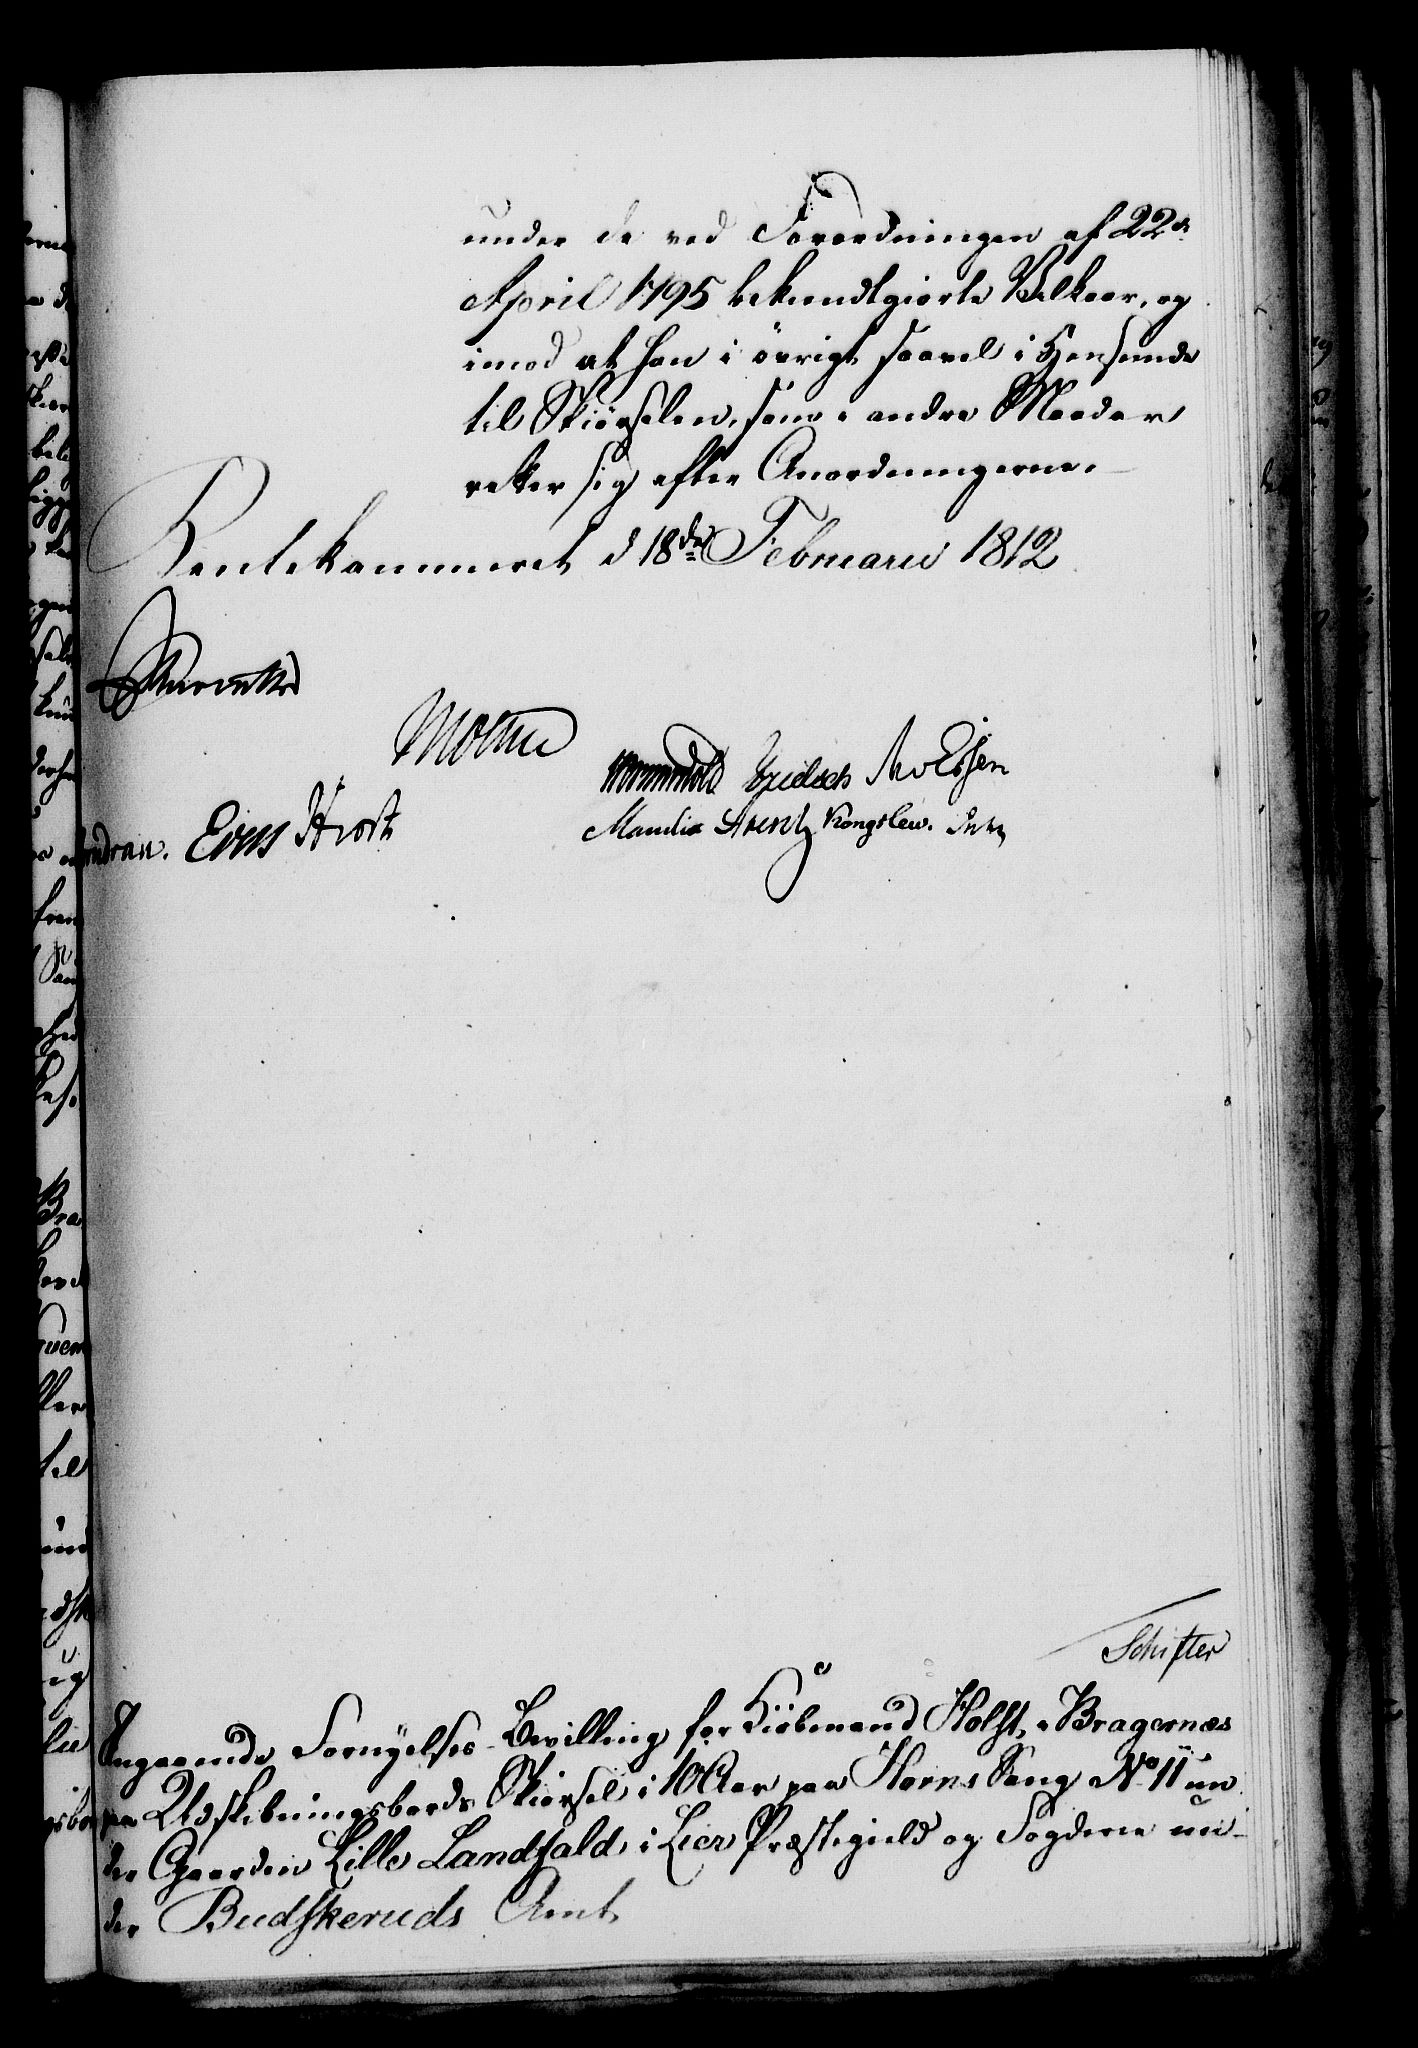 under de ved Forordningen af 22de
April 1795 bekiendtgiorte Vilkaar, og
imod at han i øvrigt saavel i Henseende
til Skiørselen, som i andre Maader
retter sig efter Anordningerne.
Rentekammeret d 18de Februarii 1812
Mølthe
Wormskiold Knudsen M v Essen
Hiort
Mandix Arentz Kongslew.
Schifter
Angaaende Fornyelses-Bevilling for Kiøbmand Holst, i Bragernæs
paa Udskibningsbords Skiørsel i 10 Aar paa Horns Saug No 11 un
der Gaarden Lille Landfald, i Lier Præstegield og Fogderie un-
der Budskeruds Amt